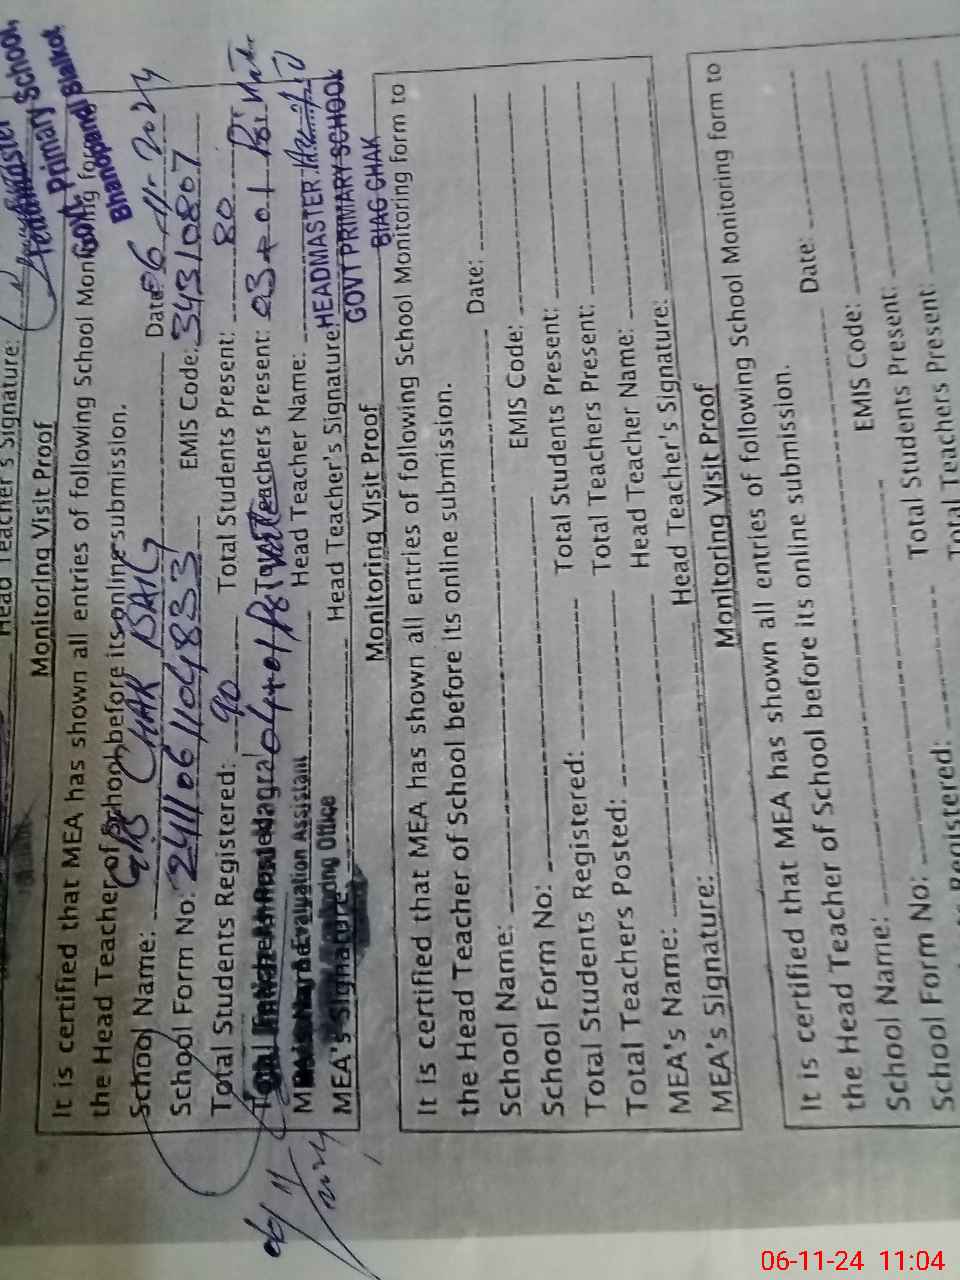 Head Teacher's Signature:
Headmaster
Govt. Primary School,
Bhanopandi Sialkot
Monitoring Visit Proof
It is certified that MEA has shown all entries of following School Monitoring form to
the Head Teacher of School before its online submission.
School Name: GPS CHAK BAIG Date: 06-11-2024
School Form No: 2411061104833 EMIS Code: 34310807
Total Students Registered: 90 Total Students Present: 80
Total Teachers Present: 03+01
Monitoring & Evaluation Assistant Head Teacher Name:
MEA's Signature Head Teacher's Signature:
HEADMASTER
GOVT PRIMARY SCHOOL
BIAG CHAK
06/11
2024
Monitoring Visit Proof
It is certified that MEA has shown all entries of following School Monitoring form to
the Head Teacher of School before its online submission.
School Name: Date:
School Form No: EMIS Code:
Total Students Registered: Total Students Present:
Total Teachers Posted: Total Teachers Present:
MEA's Name: Head Teacher Name:
MEA's Signature: Head Teacher's Signature:
Monitoring Visit Proof
It is certified that MEA has shown all entries of following School Monitoring form to
the Head Teacher of School before its online submission.
School Name: Date:
School Form No: EMIS Code:
Registered: Total Students Present:
Total Teachers Present:
06-11-24 11:04